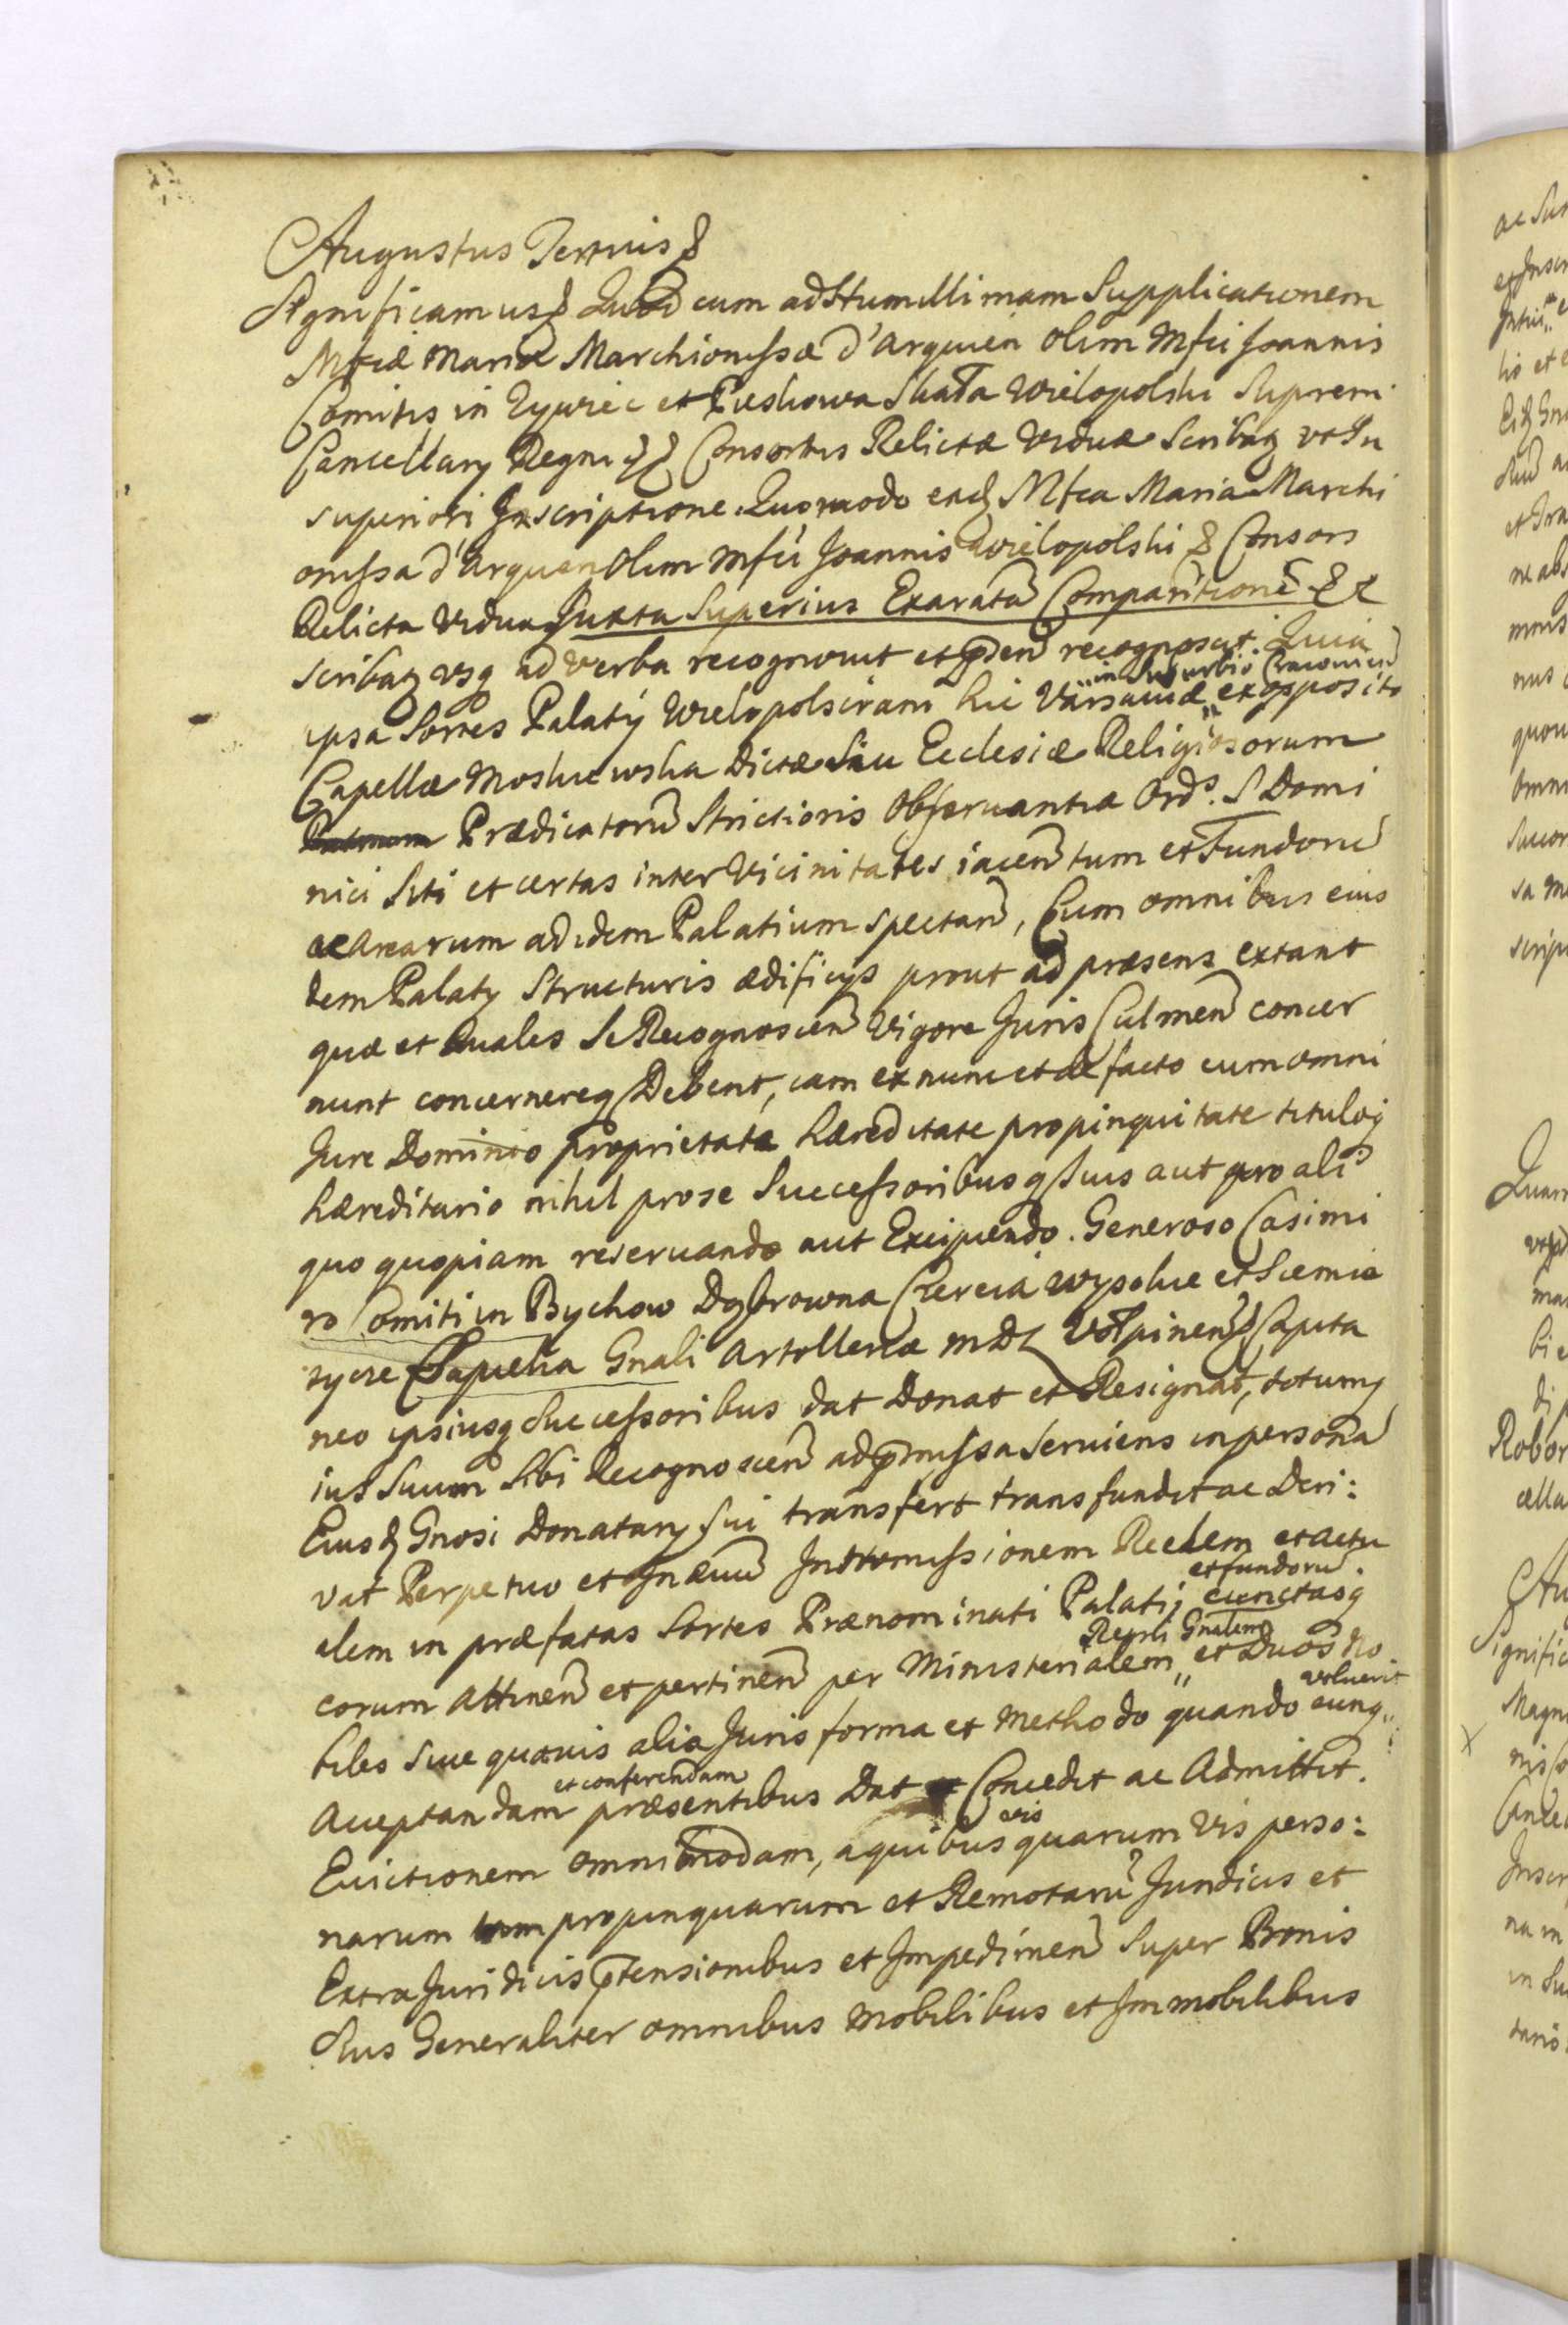 Augustus Tertius &
Significamus & Quod cum ad Humillimam Supplicationem
Mfcæ Mariæ Marchionissæ d'Arquien olim Mfci Joannis
Comitis in Zywiec et Pieskowa Skała Wielopolski Supremi
Cancellarÿ Regni && Consortis Relictæ Viduæ Scribatq vt In
superiori Inscriptione. Quomodo eadq Mfca Maria Marchi
onissa d'Arquien Olim Mfci Joannis Wielopolski & Consors
Relicta Vidua Juxta Superius Exaratã Comparitionẽ &
scribatq vsq ad verba recognovit et p̃den̄ recognoscit. Quia
ipsa Sortes Palatÿ Wielopolsciani hic Varsaviæ „in Suburbio Cracoviẽn„ ex opposito
Capellæ Moskiewska Dictæ Siue Ecclesiæ Religiosorum
Prædicatorũ Strictioris Obseruantiæ Ordis. S Domi
nici Siti et certas inter Vicinitates iacen̄ tum et Fundorũ
ac Arearum ad idem Palatium spectan̄, Cum omnibus eius
dem Palatÿ Structuris ædificÿs prout ad præsens extant
quæ et Quales Se Recognoscen̄ Vigore Juris Culmen̄ concer
nunt concernereq Debent, iam ex nunc et de facto cum omni
Jure Dominio proprietate hæreditate propinquitate tituloq
hæreditario nihil pro se Successoribusq Suis aut pro ali
quo quopiam reseruando aut Excipiendo. Generoso Casimi
ro Comiti in Bychow Dąbrowna Czereia Wysokie et Siemia
tycze Sapieha Gnali Artolleriæ MDL Vołpinen̄ Capita
neo ipsiusq Successoribus dat Donat et Resignat, totumq
ius Suum Sibi Recognoscen̄ ad p̃missa Seruiens in personã
Eiusdq Gnosi Donatarÿ Sui transfert transfundit ac Deri:
vat Perpetuo et In æuũ Intromissionem Realem et actu
alem in præfatas Sortes Prænominati Palatij et fundorũ cunctasq
eorum Attinen̄ et pertinen̄ per Ministerialem „Regni Gnalem„ et Duos No
biles Siue quavis alia Juris forma et Methodo quando cunq„ voluerit
Acceptandam et conferendam præsentibus Dat Concedit ac Admittit.
Euictionem omnimodam, a quibusvis quarum Vis perso:
narum tam propinquarum et Remotarũ Juridicis et
Extra Juridicis p̃tensionibus et Impedimen̄ Super Bonis
Suis Generaliter omnibus Mobilibus et Immobilibus